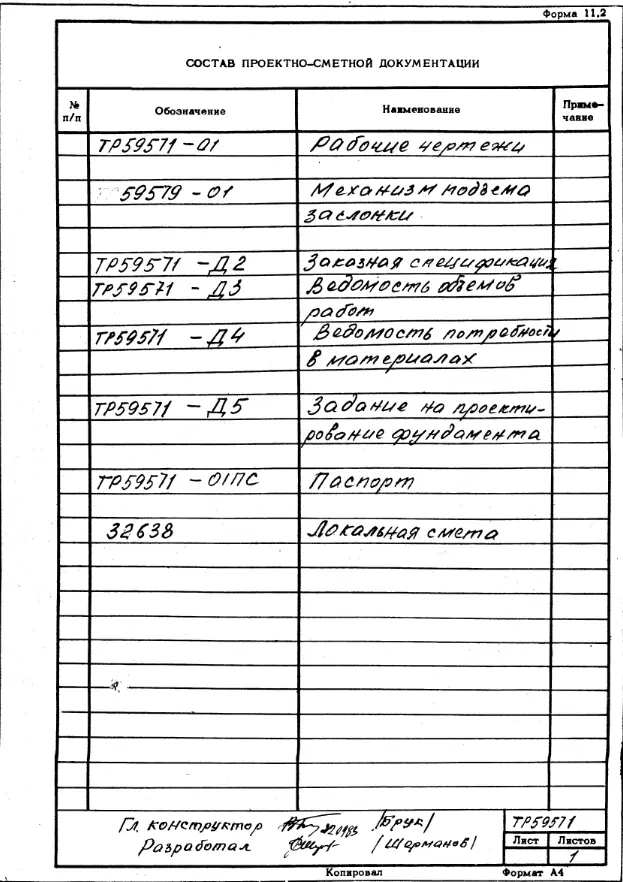 Форма 11.2
СОСТАВ ПРОЕКТНО-СМЕТНОЙ ДОКУМЕНТАЦИИ
№ п/п Обозначение Наименование Приме-чание
ТР59571-01 Рабочие чертежи
59579-01 Механизм подъема
заслонки
ТР59571-Д2 Заказная спецификация
ТР59571-Д3 Ведомость объемов
работ
ТР59571-Д4 Ведомость потребности
в материалах
ТР59571-Д5 Задание на проекти-
рование фундамента
ТР59571-01ПС Паспорт
32638 Локальная смета
Гл. конструктор /Брук/ ТР59571
Разработал /Шарманов/ Лист Листов
1
Копировал Формат А4